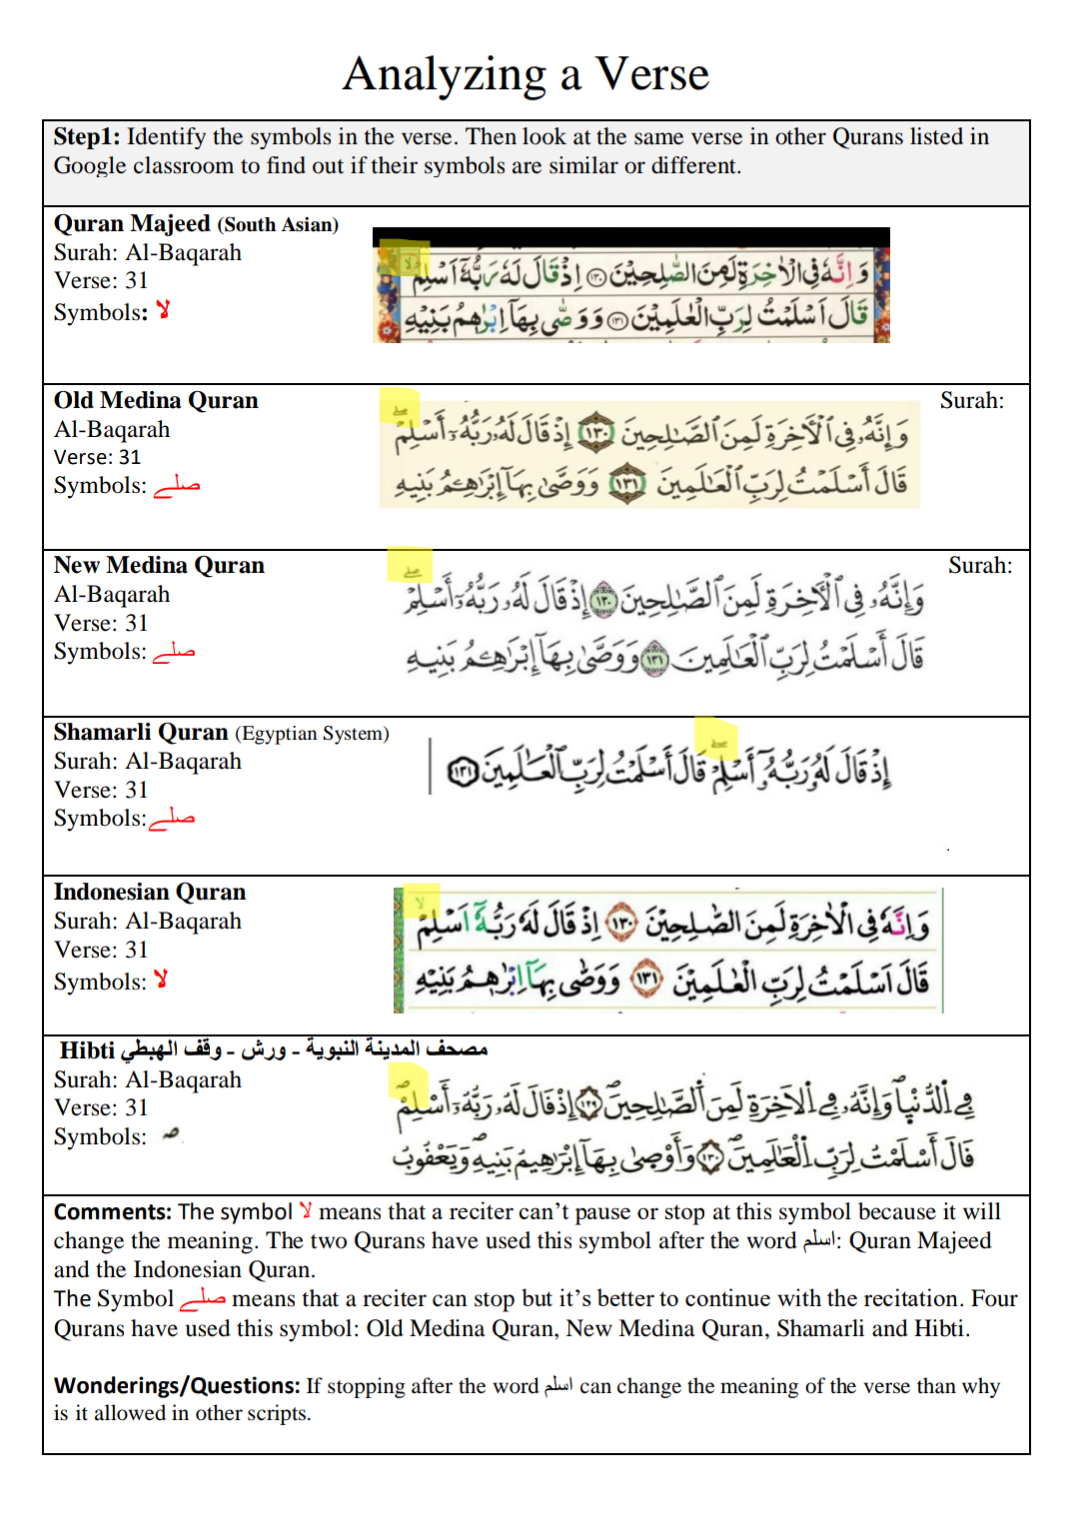 Analyzing a Verse
Step1: Identify the symbols in the verse. Then look at the same verse in other Qurans listed in
Google classroom to find out if their symbols are similar or different.
Quran Majeed (South Asian)
Surah: Al-Baqarah
Verse: 31
Symbols: لا
وَاِنَّهٗ فِی الْاٰخِرَةِ لَمِنَ الصّٰلِحِیْنَ ﴿۱۳۰﴾ اِذْ قَالَ لَهٗ رَبُّهٗۤ اَسْلِمْ ۙ
قَالَ اَسْلَمْتُ لِرَبِّ الْعٰلَمِیْنَ ﴿۱۳۱﴾ وَ وَصّٰی بِهَاۤ اِبْرٰهٖمُ بَنِیْهِ
Old Medina Quran Surah:
Al-Baqarah
Verse: 31
Symbols: صلے
وَإِنَّهُۥ فِى ٱلْأَخِرَةِ لَمِنَ ٱلصَّٰلِحِينَ ﴿١٣٠﴾ إِذْ قَالَ لَهُۥ رَبُّهُۥٓ أَسْلِمْ ۖ
قَالَ أَسْلَمْتُ لِرَبِّ ٱلْعَٰلَمِينَ ﴿١٣١﴾ وَوَصَّىٰ بِهَآ إِبْرَٰهِـۧمُ بَنِيهِ
New Medina Quran Surah:
Al-Baqarah
Verse: 31
Symbols: صلے
وَإِنَّهُۥ فِي ٱلْأٓخِرَةِ لَمِنَ ٱلصَّٰلِحِينَ ﴿١٣٠﴾ إِذْ قَالَ لَهُۥ رَبُّهُۥٓ أَسْلِمْۖ
قَالَ أَسْلَمْتُ لِرَبِّ ٱلْعَٰلَمِينَ ﴿١٣١﴾ وَوَصَّىٰ بِهَآ إِبْرَٰهِـۧمُ بَنِيهِ
Shamarli Quran (Egyptian System)
Surah: Al-Baqarah
Verse: 31
Symbols: صلے
إِذْ قَالَ لَهُۥ رَبُّهُۥٓ أَسْلِمْۖ قَالَ أَسْلَمْتُ لِرَبِّ ٱلْعَٰلَمِينَ ﴿١٣١﴾
Indonesian Quran
Surah: Al-Baqarah
Verse: 31
Symbols: لا
وَاِنَّهٗ فِى الْاٰخِرَةِ لَمِنَ الصّٰلِحِيْنَ ﴿١٣٠﴾ اِذْ قَالَ لَهٗ رَبُّهٗٓ اَسْلِمْۙ
قَالَ اَسْلَمْتُ لِرَبِّ الْعٰلَمِيْنَ ﴿١٣١﴾ وَوَصّٰى بِهَآ اِبْرٰهٖمُ بَنِيْهِ
Hibti مصحف المدينة النبوية - ورش - وقف الهبطي
Surah: Al-Baqarah
Verse: 31
Symbols: صـ
فِے اِ۬لدُّنْي۪اۖ وَإِنَّهُۥ فِے اِ۬لَاخِرَةِ لَمِنَ اَ۬لصَّٰلِحِينَۖ ﴿١٢٩﴾ إِذْ قَالَ لَهُۥ رَبُّهُۥٓ أَسْلِمْۖ
قَالَ أَسْلَمْتُ لِرَبِّ اِ۬لْعَٰلَمِينَۖ ﴿١٣٠﴾ وَأَوْص۪ىٰ بِهَآ إِبْرَٰهِيمُ بَنِيهِ وَيَعْقُوبُ
Comments: The symbol لا means that a reciter can’t pause or stop at this symbol because it will
change the meaning. The two Qurans have used this symbol after the word اسلم: Quran Majeed
and the Indonesian Quran.
The Symbol صلے means that a reciter can stop but it’s better to continue with the recitation. Four
Qurans have used this symbol: Old Medina Quran, New Medina Quran, Shamarli and Hibti.
Wonderings/Questions: If stopping after the word اسلم can change the meaning of the verse than why
is it allowed in other scripts.